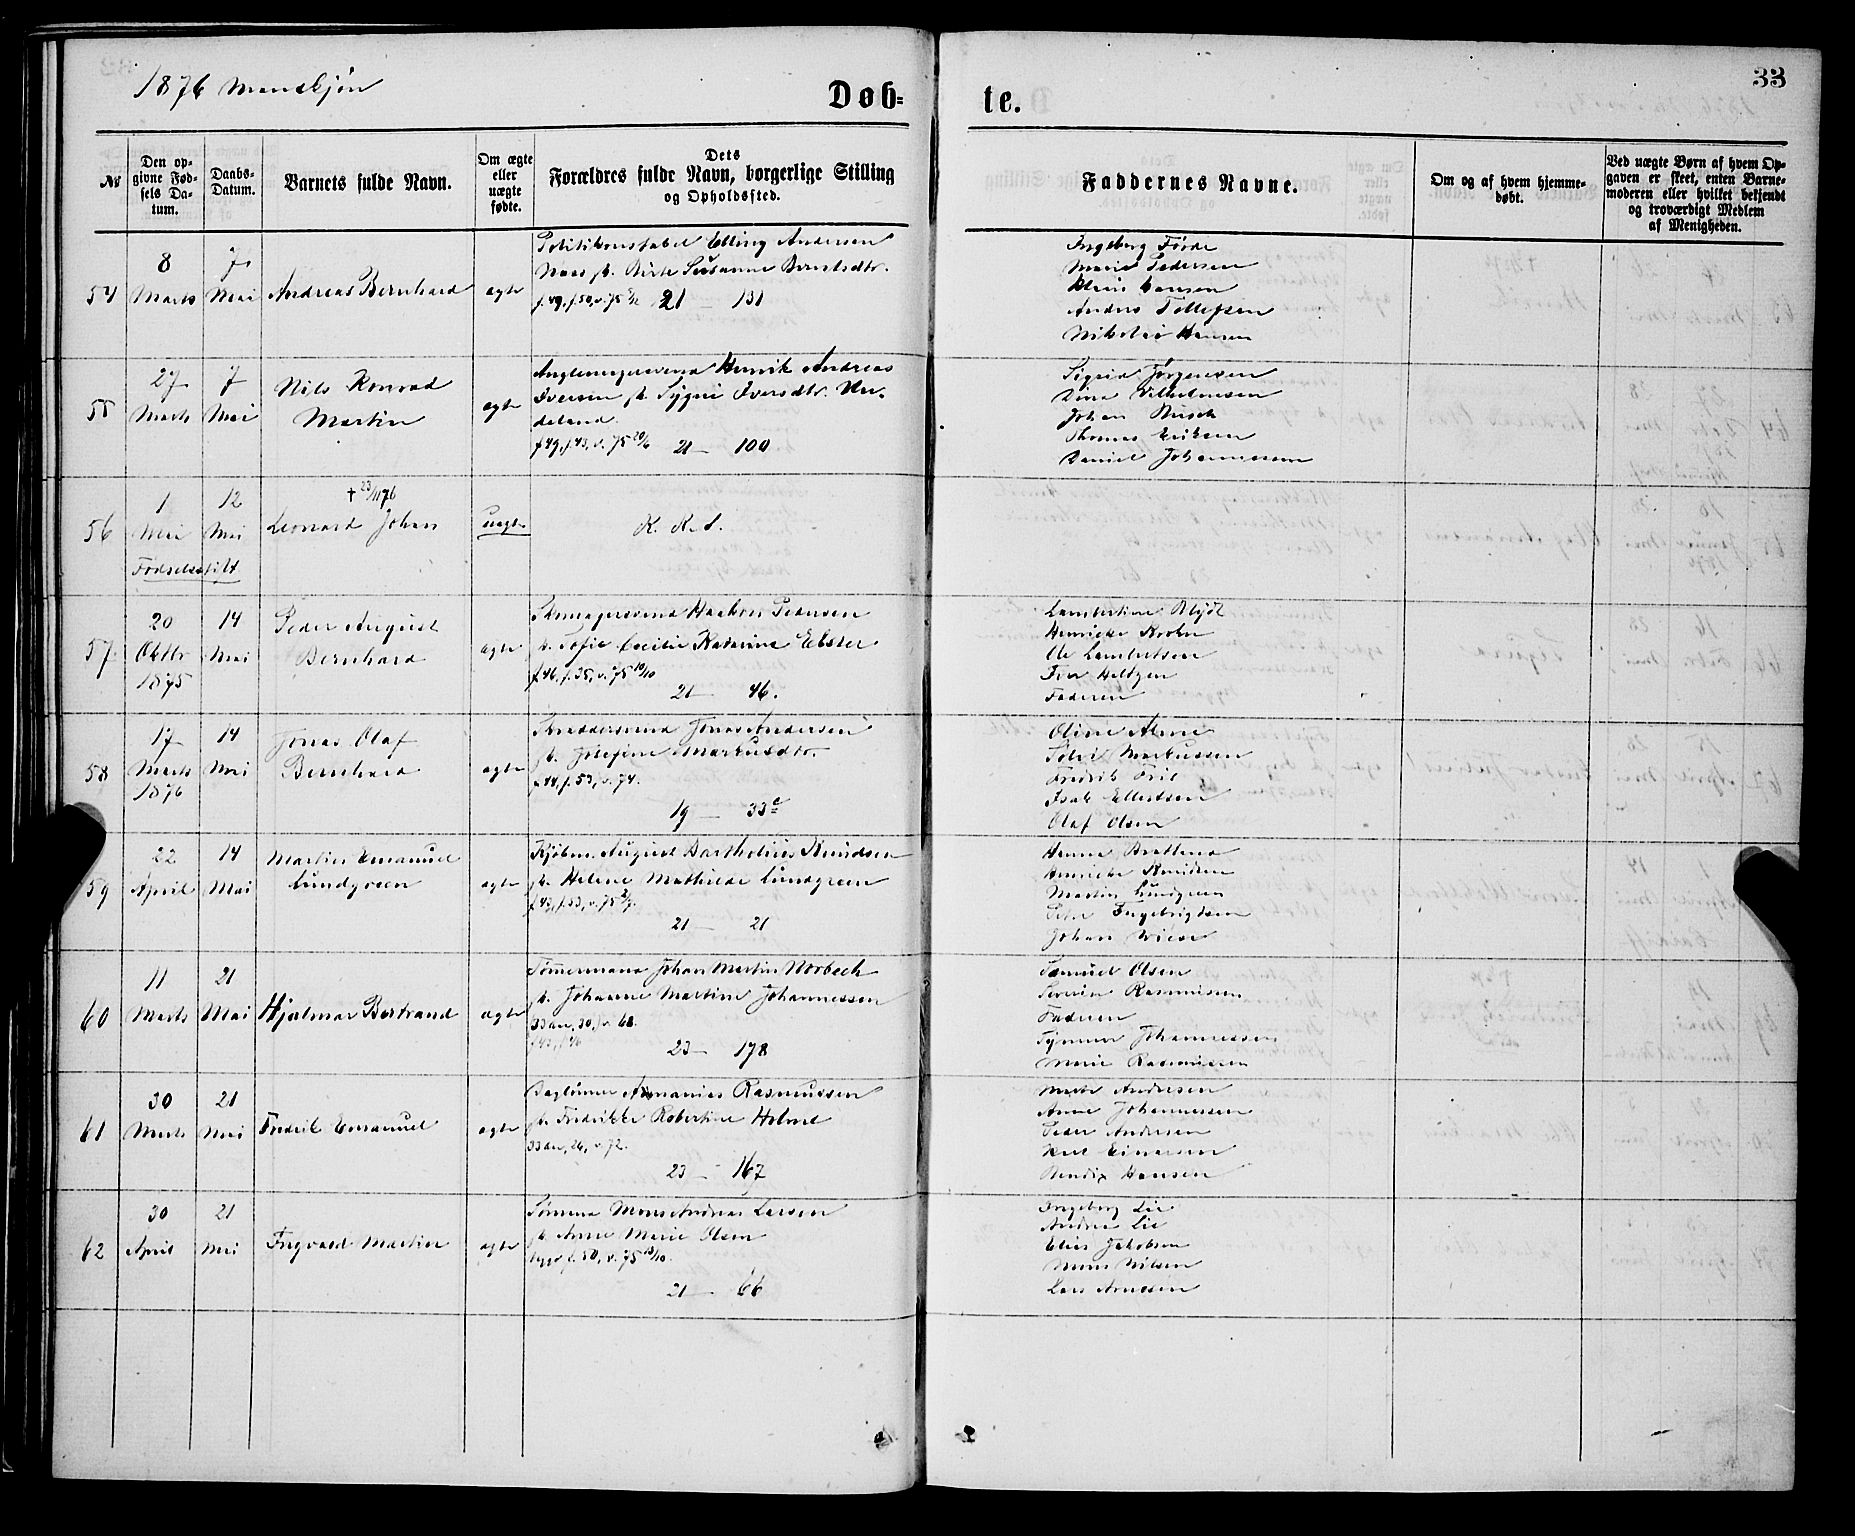 1876 Mandkjøn
Døb=
te.
33
№
Den op-
givne Fød-
sels Da-
tum.
Daabs-
Datum.
Barnets fulde Navn.
Om ægte
eller
uægte
fødte.
Dets
Forældres fulde Navn, borgerlige Stilling
og Opholdssted.
Faddernes Navne.
Om og af hvem hjemme-
døbt.
Ved uægte Børn af hvem Op-
gaven er skeet, enten Barne-
moderen eller hvilket bekjendt
og troværdigt Medlem
af Menigheden.
54
8
Marts
7
Mai
Andreas Bernhard
ægte
Politikonstabel Elling Andersen
Naas h. Birte Susanne Berntsdtr.
f. 49, f. 50, v. 75
21 — 131
Ingeborg Førde
Marie Pedersen
Hansen
Anders Tollefsen
Nikolai Hansen
55
27
Marts
7
Mai
Nils Konrad
Martin
ægte
Henrik Andreas
Iversen h. Sygni Iversdtr.
f. 49, f. 43, v. 75 20/6
21 — 100
Sigrid Jørgensen
Dina Vilhelmsen
Johan Busch
Thomas Eriksen
Daniel Johannessen
56
1
Mai
Fødselsstift
12
Mai
† 23/11 76
Leonard Johan
uægte
K. K. S.
57
20
Oktbr
1875
14
Mai
Peder August
Bernhard
ægte
Skomagersvend Haakon Pedersen
h. Sofie Cecilie Katarina Ebster
f. 46, f. 35, v. 75 10/10
21 — 46.
Lambertine Blydt
Henrikke Krohn
Ole Lambertsen
Iver Heltzen
Faderen
58
17
Marts
1876
14
Mai
Jonas Olaf
Bernhard
ægte
Skræddersvend Jonas Andersen
h. Josefine Markusdtr.
f. 44, f. 53, v. 74.
19 — 33c
Oline Alme
Sofie Markussen
Fredrik Friis
Isak Ellertsen
Olaf Olsen
59
22
April
14
Mai
Martin Emanuel
Lundgreen
ægte
Kjøbm. August Bartholius Knudsen
h. Helene Mathilde Lundgreen
f. 49, f. 53, v. 75
21 — 21
Hanna Brattend
Henrikke Knudsen
Martin Lundgreen
Peter Ingebrigtsen
Johan Wiese
60
11
Marts
21
Mai
Hjalmar Bertrand
ægte
Tømmermand Johan Martin Norbech
h. Johanne Martine Johannessen
33 aar, 30, v. 68.
f. 43, f. 46
23 — 178
Samuel Olsen
Severin Rasmussen
Faderen
Johannessen
Marie Rasmussen
61
30
Marts
21
Mai
Fredrik Emanuel
ægte
Daglønner Ananias Rasmussen
h. Fredrikke Robertine Holmed
33 aar, 26, v. 72.
23 — 167
Marte Andersen
Anne Johannessen
Peder Andersen
Karl Einersen
Bendix Hansen
62
30
April
21
Mai
Ingvald Martin
ægte
Sømand Mons Andreas Larsen
h. Anne Marie Olsen
f. 50, v. 75 13/10.
21 — 66
Ingeborg Lie
Andrea Lie
Elias Jakobsen
Mons Nilsen
Lars Arnesen